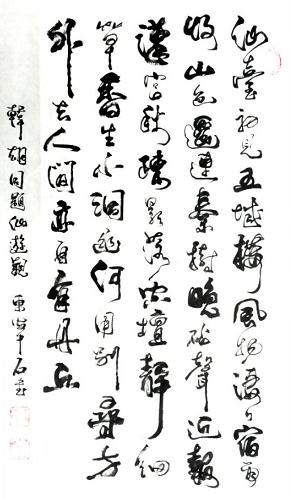 仙臺初見五城樓風物淒々宿雨
收山色遥連秦樹晚砧聲近報
漢宮秋疏松影落空壇靜細
草香生小洞幽何用別尋方
外去人間亦自有丹丘
韓翃同題仙遊觀 中石書